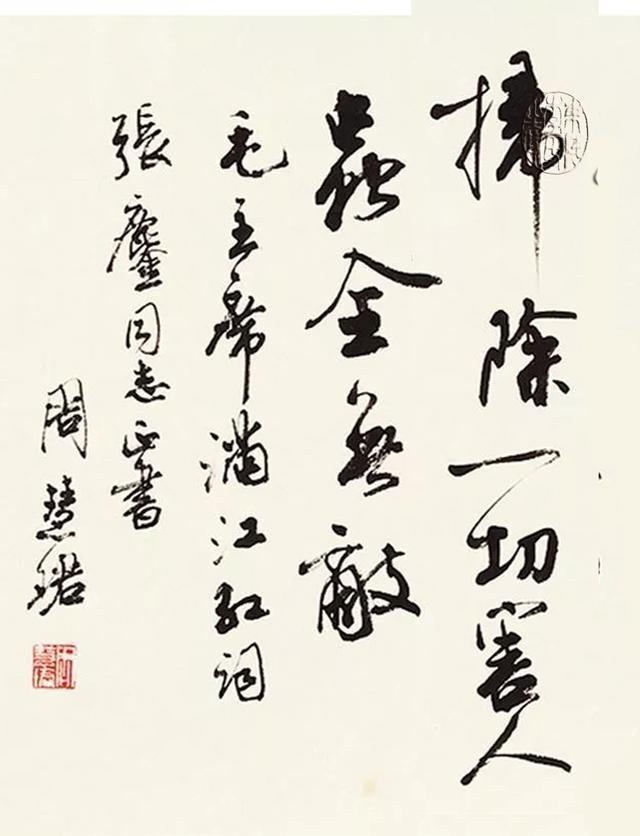 掃除一切害人
蟲全無敵
毛主席滿江紅詞
張鏖同志正書
周慧珺